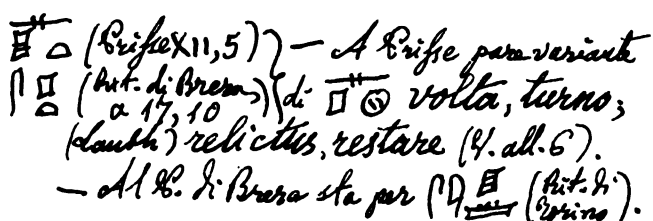 (Prisse XII, 5) — A Prisse pare variante
(Rit. di Brera, a 17, 10) di volta, turno;
(Lauth) relictus, restare (V. all. 6).
— Al R. di Brera sta per (Rit. di Torino).